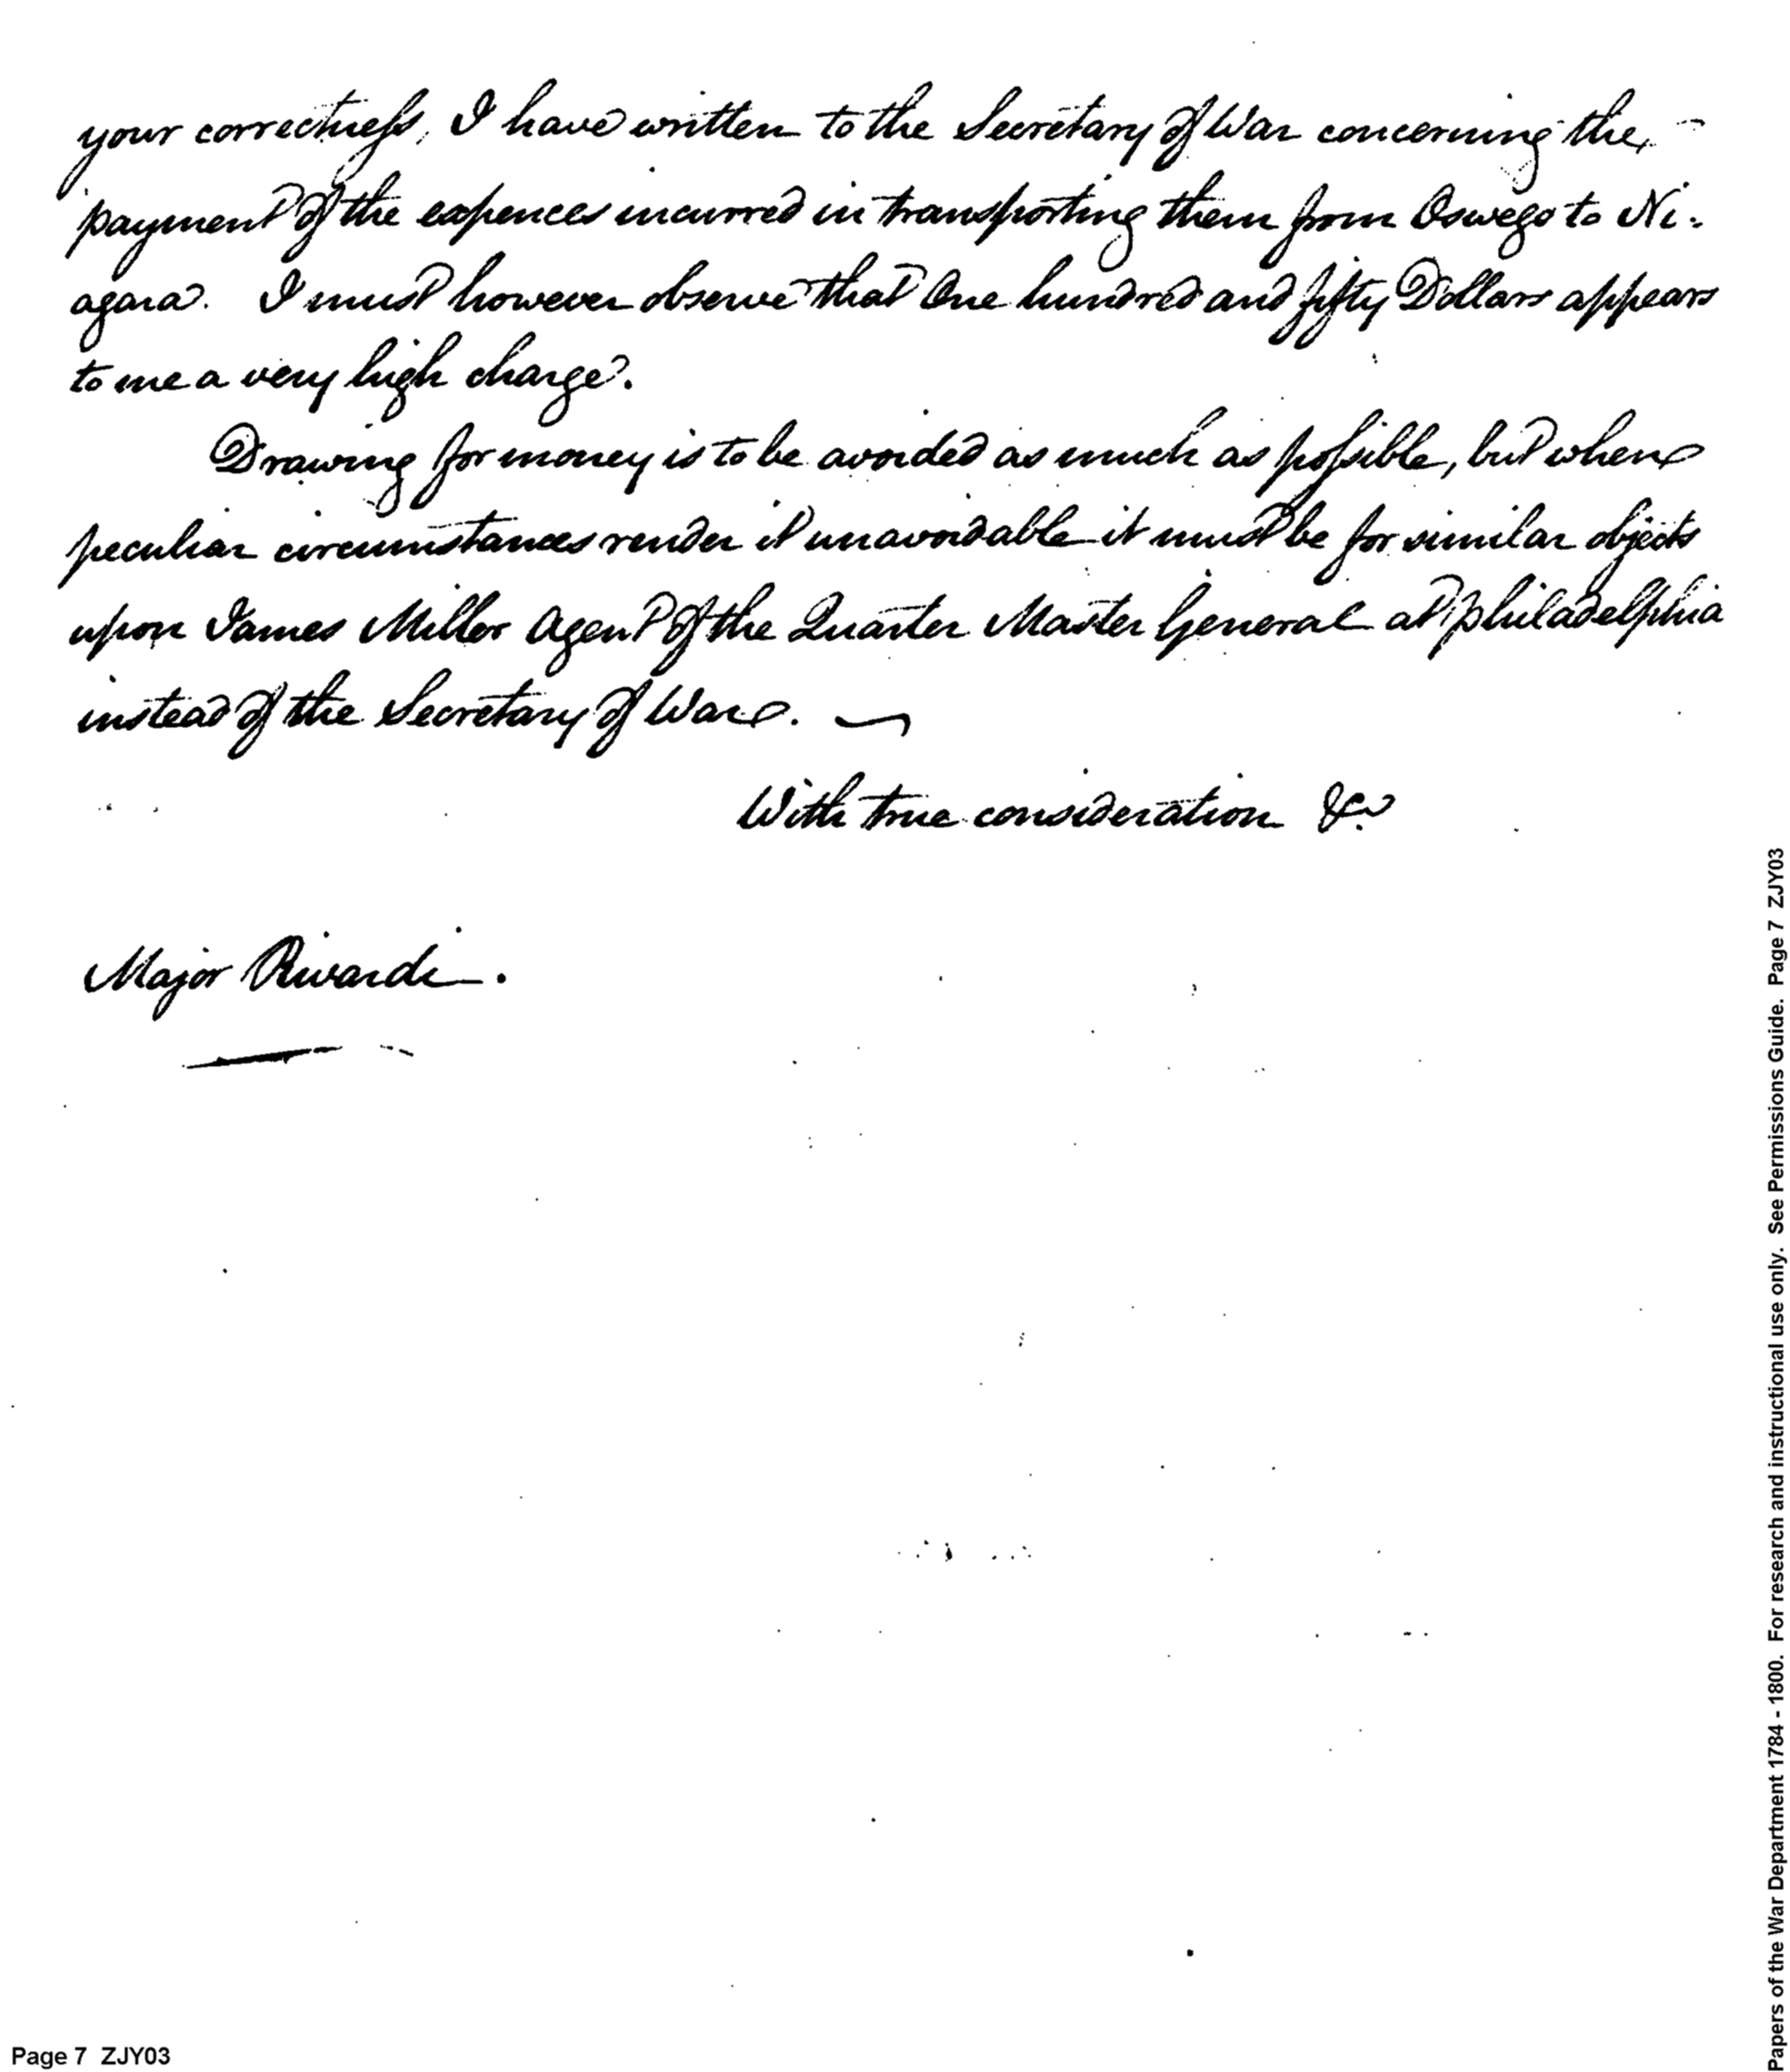 your correctness. I have written to the Secretary of War concerning the
payment of the expences incurred in transporting them from Oswego to Ni-
agara. I must however observe that One hundred and fifty Dollars appears
to me a very high charge.
Drawing for money is to be avoided as much as possible, but when
peculiar circumstances render it unavoidable it must be for similar objects
upon James Miller Agent of the Quarter Master General at Philadelphia
instead of the Secretary of War.
With true consideration &c
Major Rivardi.
Page 7 ZJY03
Papers of the War Department 1784 - 1800. For research and instructional use only. See Permissions Guide. Page 7 ZJY03